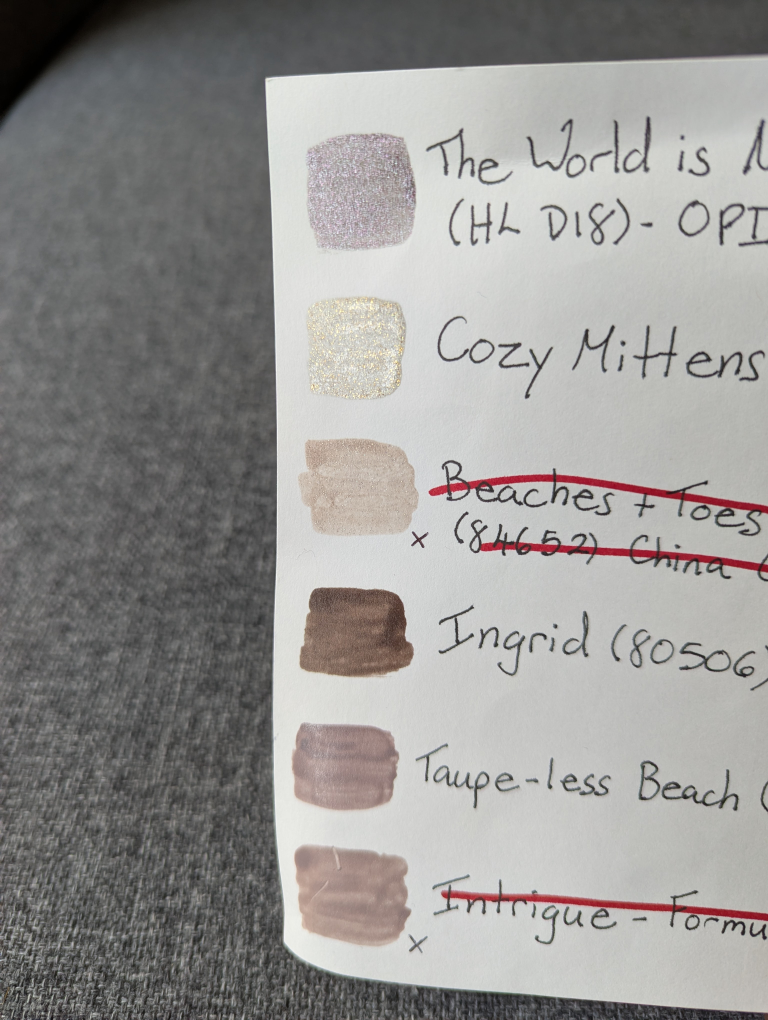 The World is
(HL D18)- OPI
Cozy Mittens
Beaches + Toes
x (84652) China
Ingrid (80506)
Taupe-less Beach (
Intrigue - Formu
x